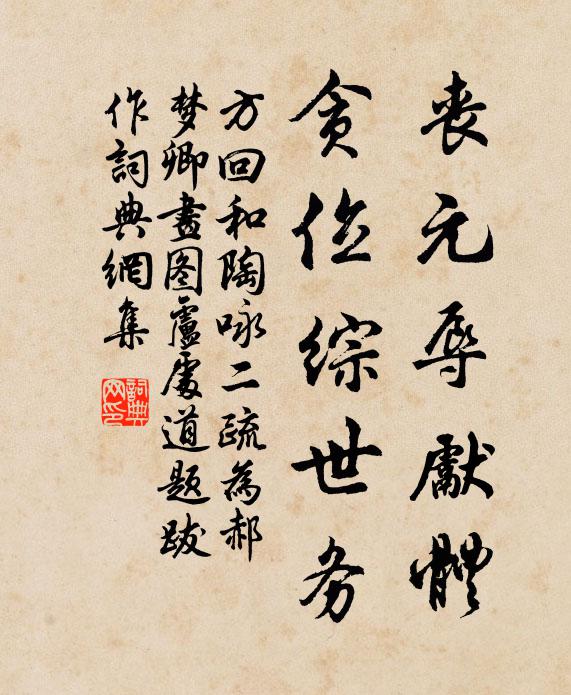 喪元辱獻體
貪位綜世务
方回和陶咏二疏為郝
梦卿畫图盧處道题跋
作詞典網集
詞典网印